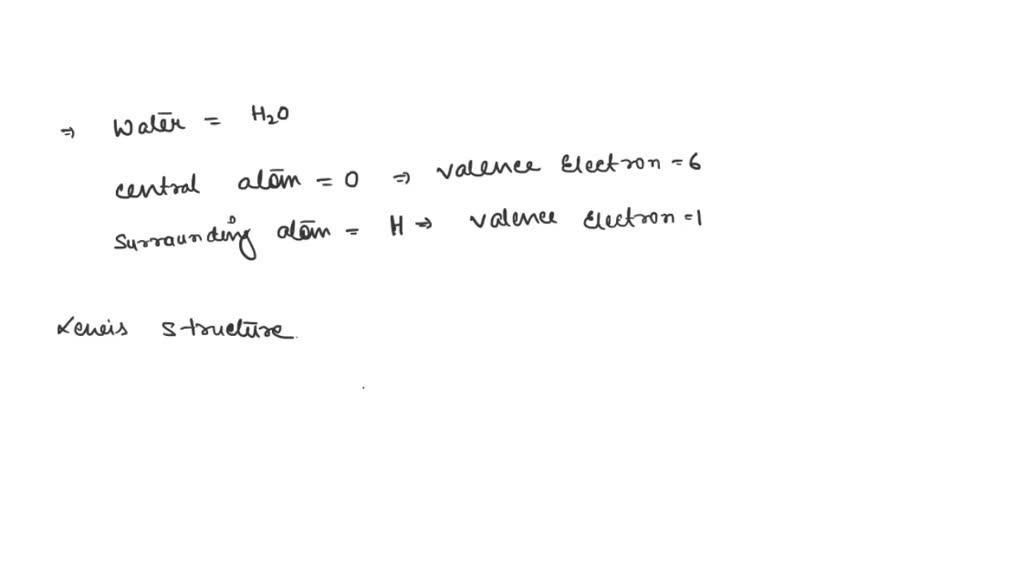 ⇒ Water = H₂O
central atom = O ⇒ valence Electron = 6
Surraunding atom = H ⇒ valence Electron = 1
Lewis structure